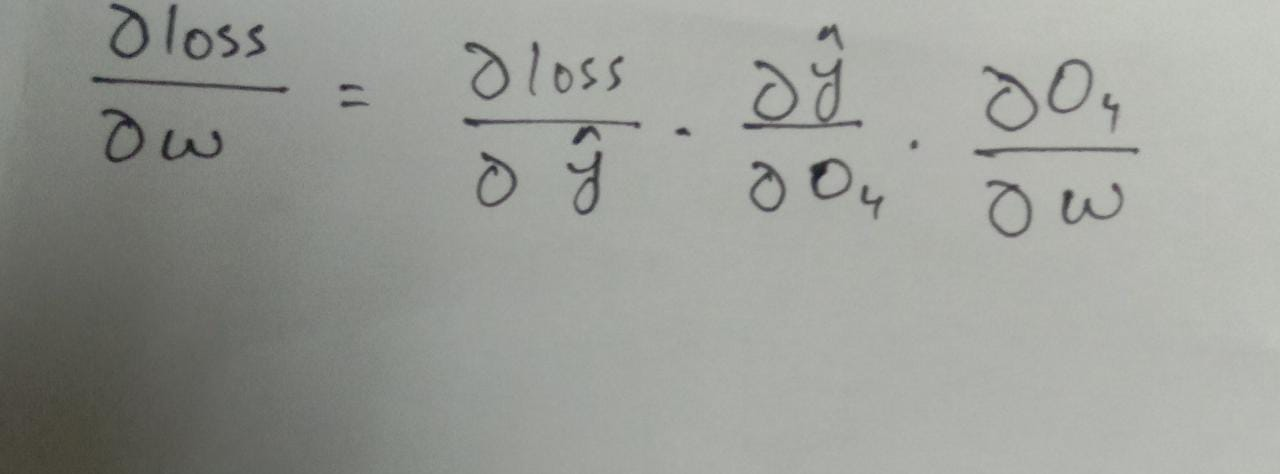 ∂loss/∂w = ∂loss/∂ŷ · ∂ŷ/∂O₄ · ∂O₄/∂w